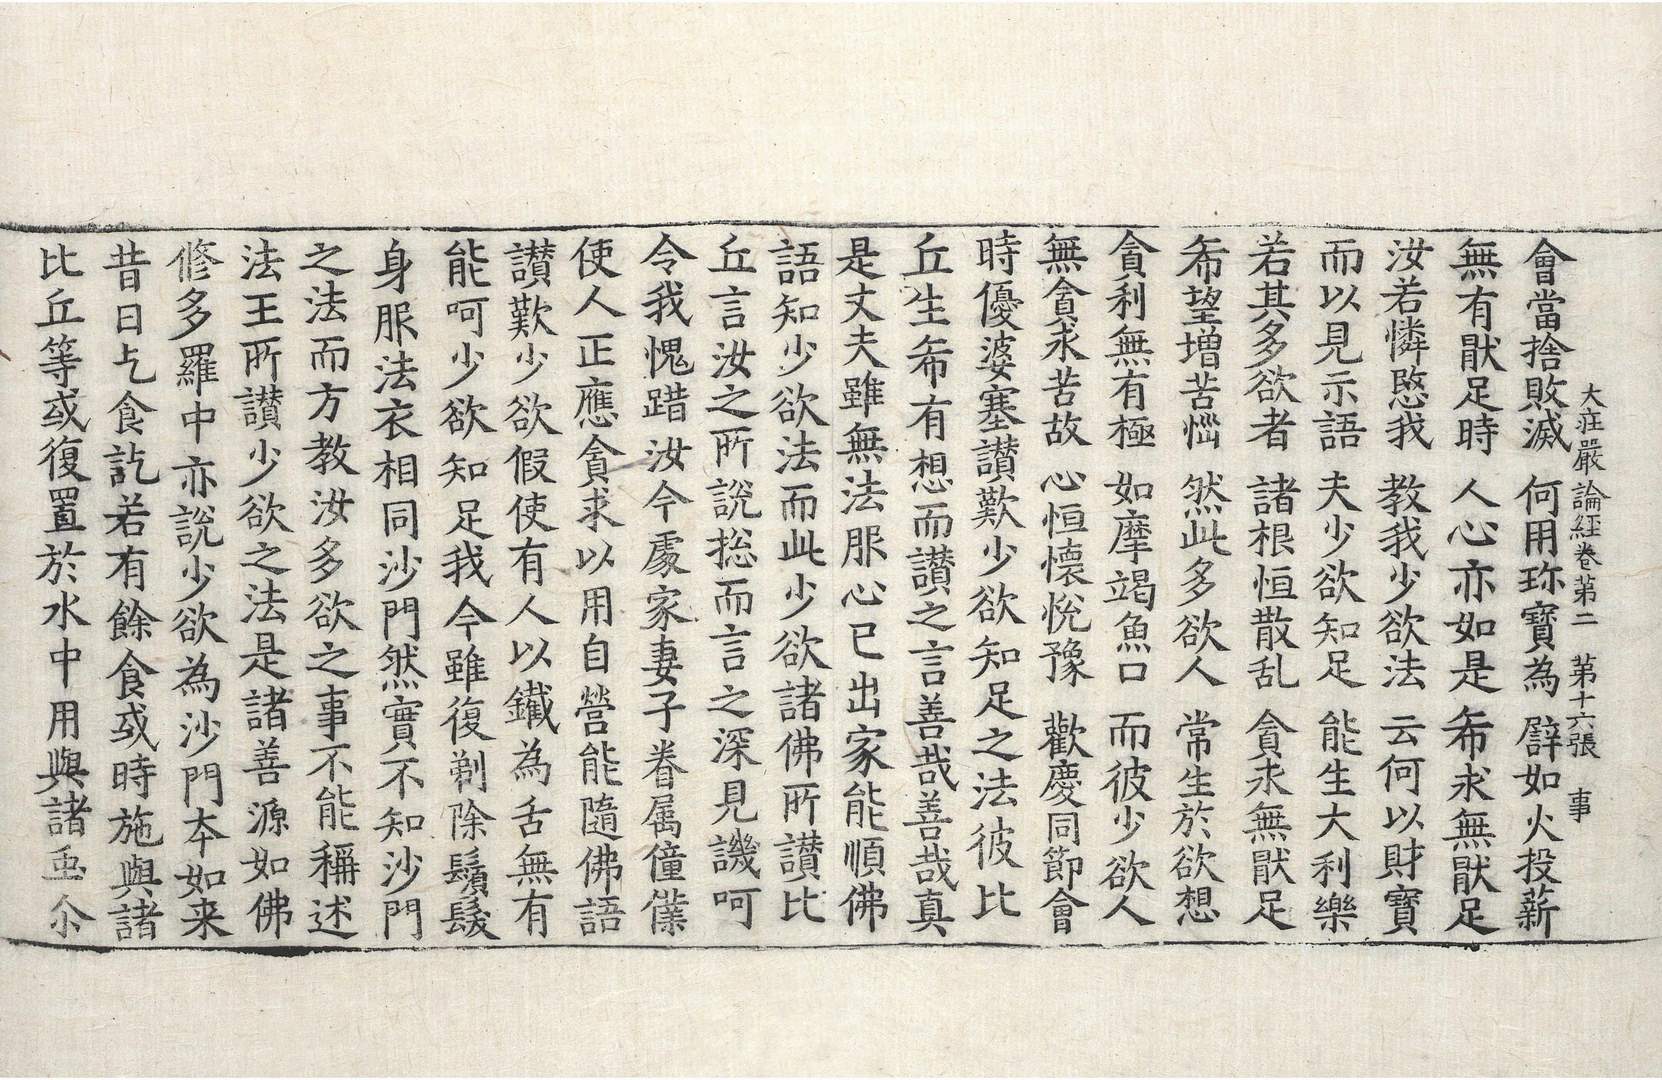 大莊嚴論經卷第二 第十六張 事
會當捨敗滅 何用珎寶為 辟如火投薪
無有猒足時 人心亦如是 希求無猒足
汝若憐愍我 教我少欲法 云何以財寶
而以見示語 夫少欲知足 能生大利樂
若其多欲者 諸根恒散乱 貪求無猒足
希望增苦惱 然此多欲人 常生於欲想
貪利無有極 如摩竭魚口 而彼少欲人
無貪求苦故 心恒懷悅豫 歡慶同節會
時優婆塞讃歎少欲知足之法彼比
丘生希有想而讃之言善哉善哉真
是丈夫雖無法服心已出家能順佛
語知少欲法而此少欲諸佛所讃比
丘言汝之所說捴而言之深見譏呵
令我愧踖汝今處家妻子眷属僮僕
使人正應貪求以用自營能隨佛語
讃歎少欲假使有人以鐵為舌無有
能呵少欲知足我今雖復剃除鬚髮
身服法衣相同沙門然實不知沙門
之法而方教汝多欲之事不能稱述
法王所讃少欲之法是諸善源如佛
修多羅中亦說少欲為沙門夲如来
昔日乞食訖若有餘食或時施與諸
比丘等或復置於水中用與諸虫尒